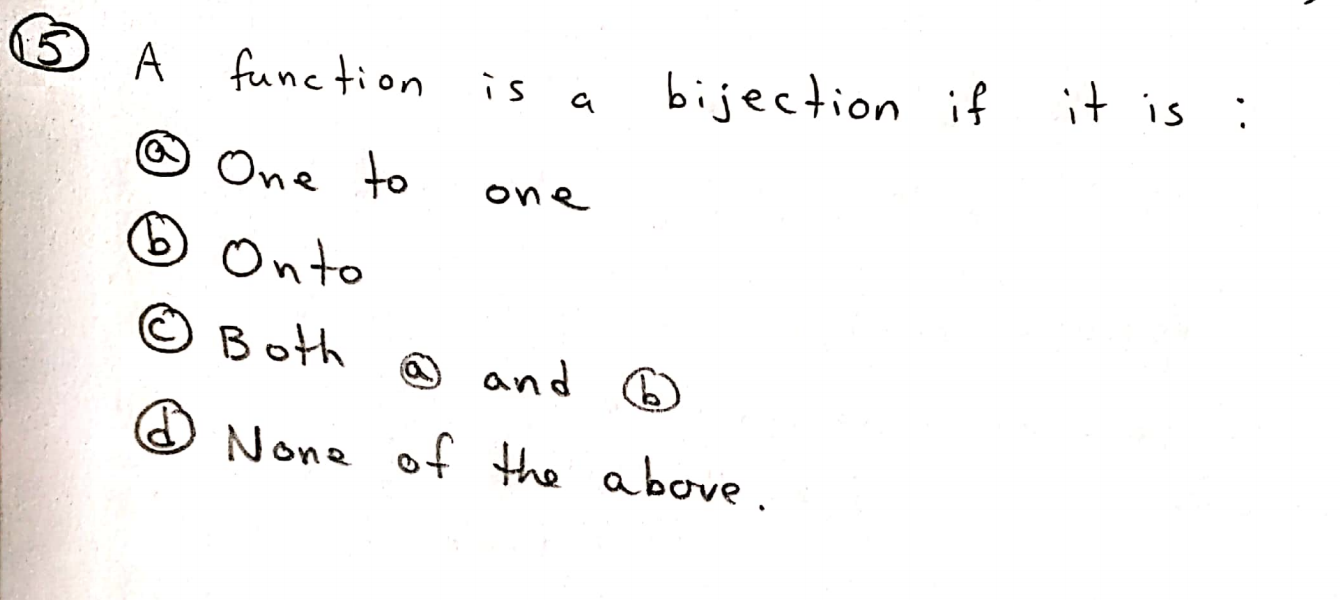 15 A function is a bijection if it is :
a One to one
b Onto
c Both a and b
d None of the above.